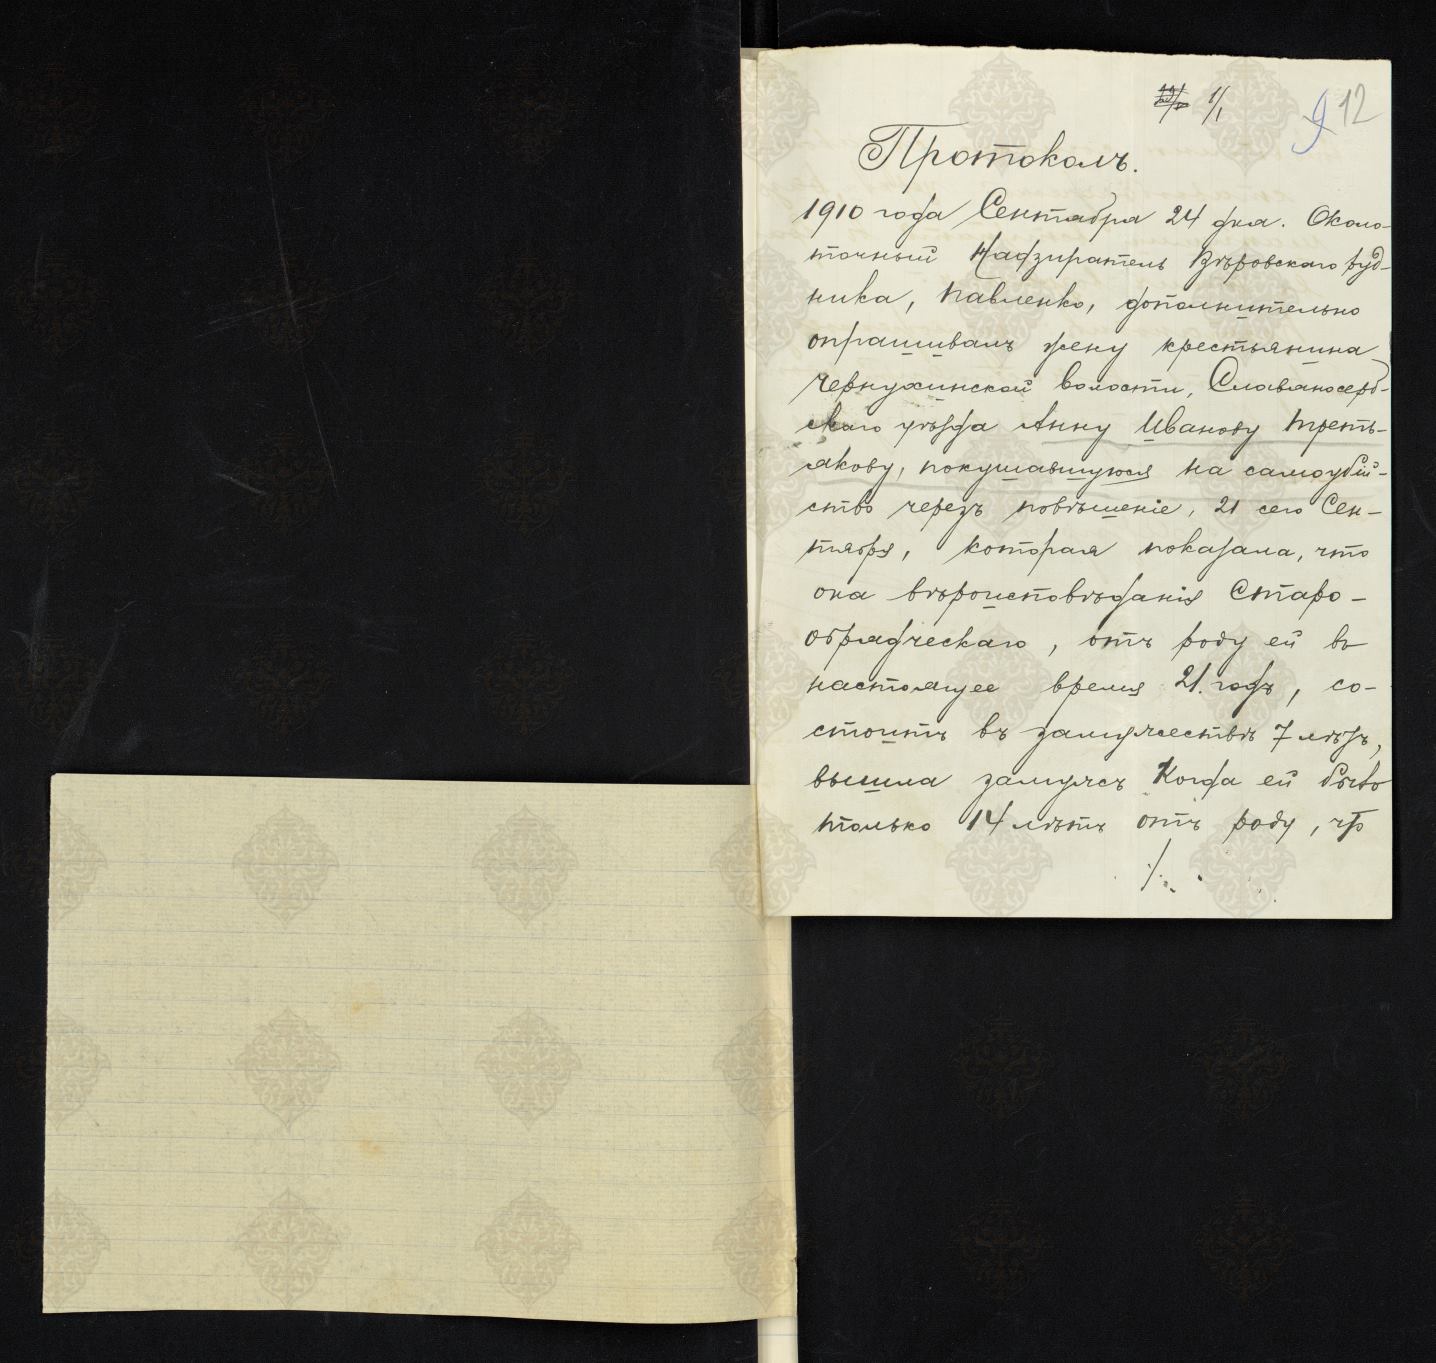 1/1
9 12
Протоколъ.
1910 года Сентября 24 дня. Около-
точный Надзиратель Вѣровскаго руд-
ника, Павленко, дополнительно
опрашивалъ жену крестьянина
Чернухинской волости, Славяносерб-
скаго уѣзда Анну Иванову Треть-
якову, покушавшуюся на самоубій-
ство черезъ повѣшеніе, 21 сего Сен-
тября, которая показала, что
она вѣроисповѣданія Старо-
обрядческаго, отъ роду ей въ
настоящее время 21. годъ, со-
стоитъ въ замужествѣ 7 лѣтъ,
вышла замужъ когда ей было
только 14 лѣтъ отъ роду, что
./.